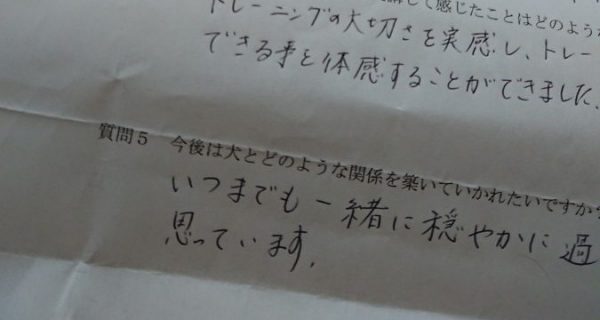 して感じたことはどのような
トレーニングの大切さを実感し、トレー
できる事と体感することができました、
質問5 今後は犬とどのような関係を築いていかれたいですか
いつまでも一緒に穏やかに過
思っています。